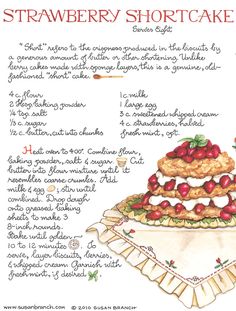 STRAWBERRY SHORTCAKE
Serves Eight
"Short" refers to the crispness produced in the biscuits by
a generous amount of butter or other shortening. Unlike
berry cakes made with sponge layers, this is a genuine, old-
fashioned "short" cake.
4 c. flour
2 tbsp. baking powder
1/4 tsp. salt
1/3 c. sugar
1/2 c. butter, cut into chunks
1 c. milk
1 large egg
3 c. sweetened whipped cream
4 c. strawberries, halved
fresh mint, opt.
Heat oven to 400°. Combine flour,
baking powder, salt & sugar. Cut
butter into flour mixture until it
resembles coarse crumbs. Add
milk & egg, stir until
combined. Drop dough
onto greased baking
sheets to make 3
8-inch rounds.
Bake until golden,
10 to 12 minutes. To
serve, layer biscuits, berries,
& whipped cream. Garnish with
fresh mint, if desired
www.susanbranch.com
© 2010 SUSAN BRANCH